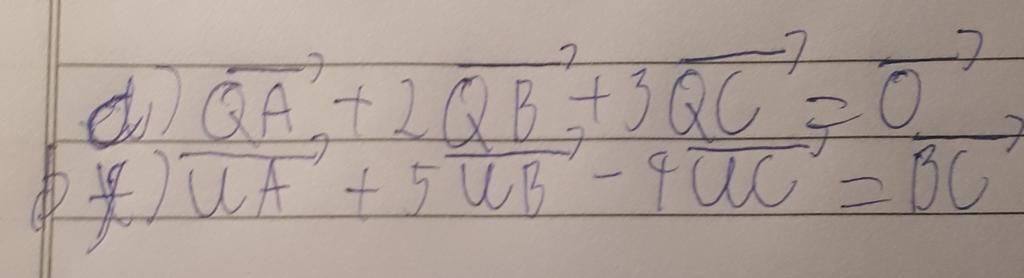 d) $\overrightarrow{QA} + 2\overrightarrow{QB} + 3\overrightarrow{QC} = \overrightarrow{0}$
$\overrightarrow{UA} + 5\overrightarrow{UB} - 4\overrightarrow{UC} = \overrightarrow{BC}$